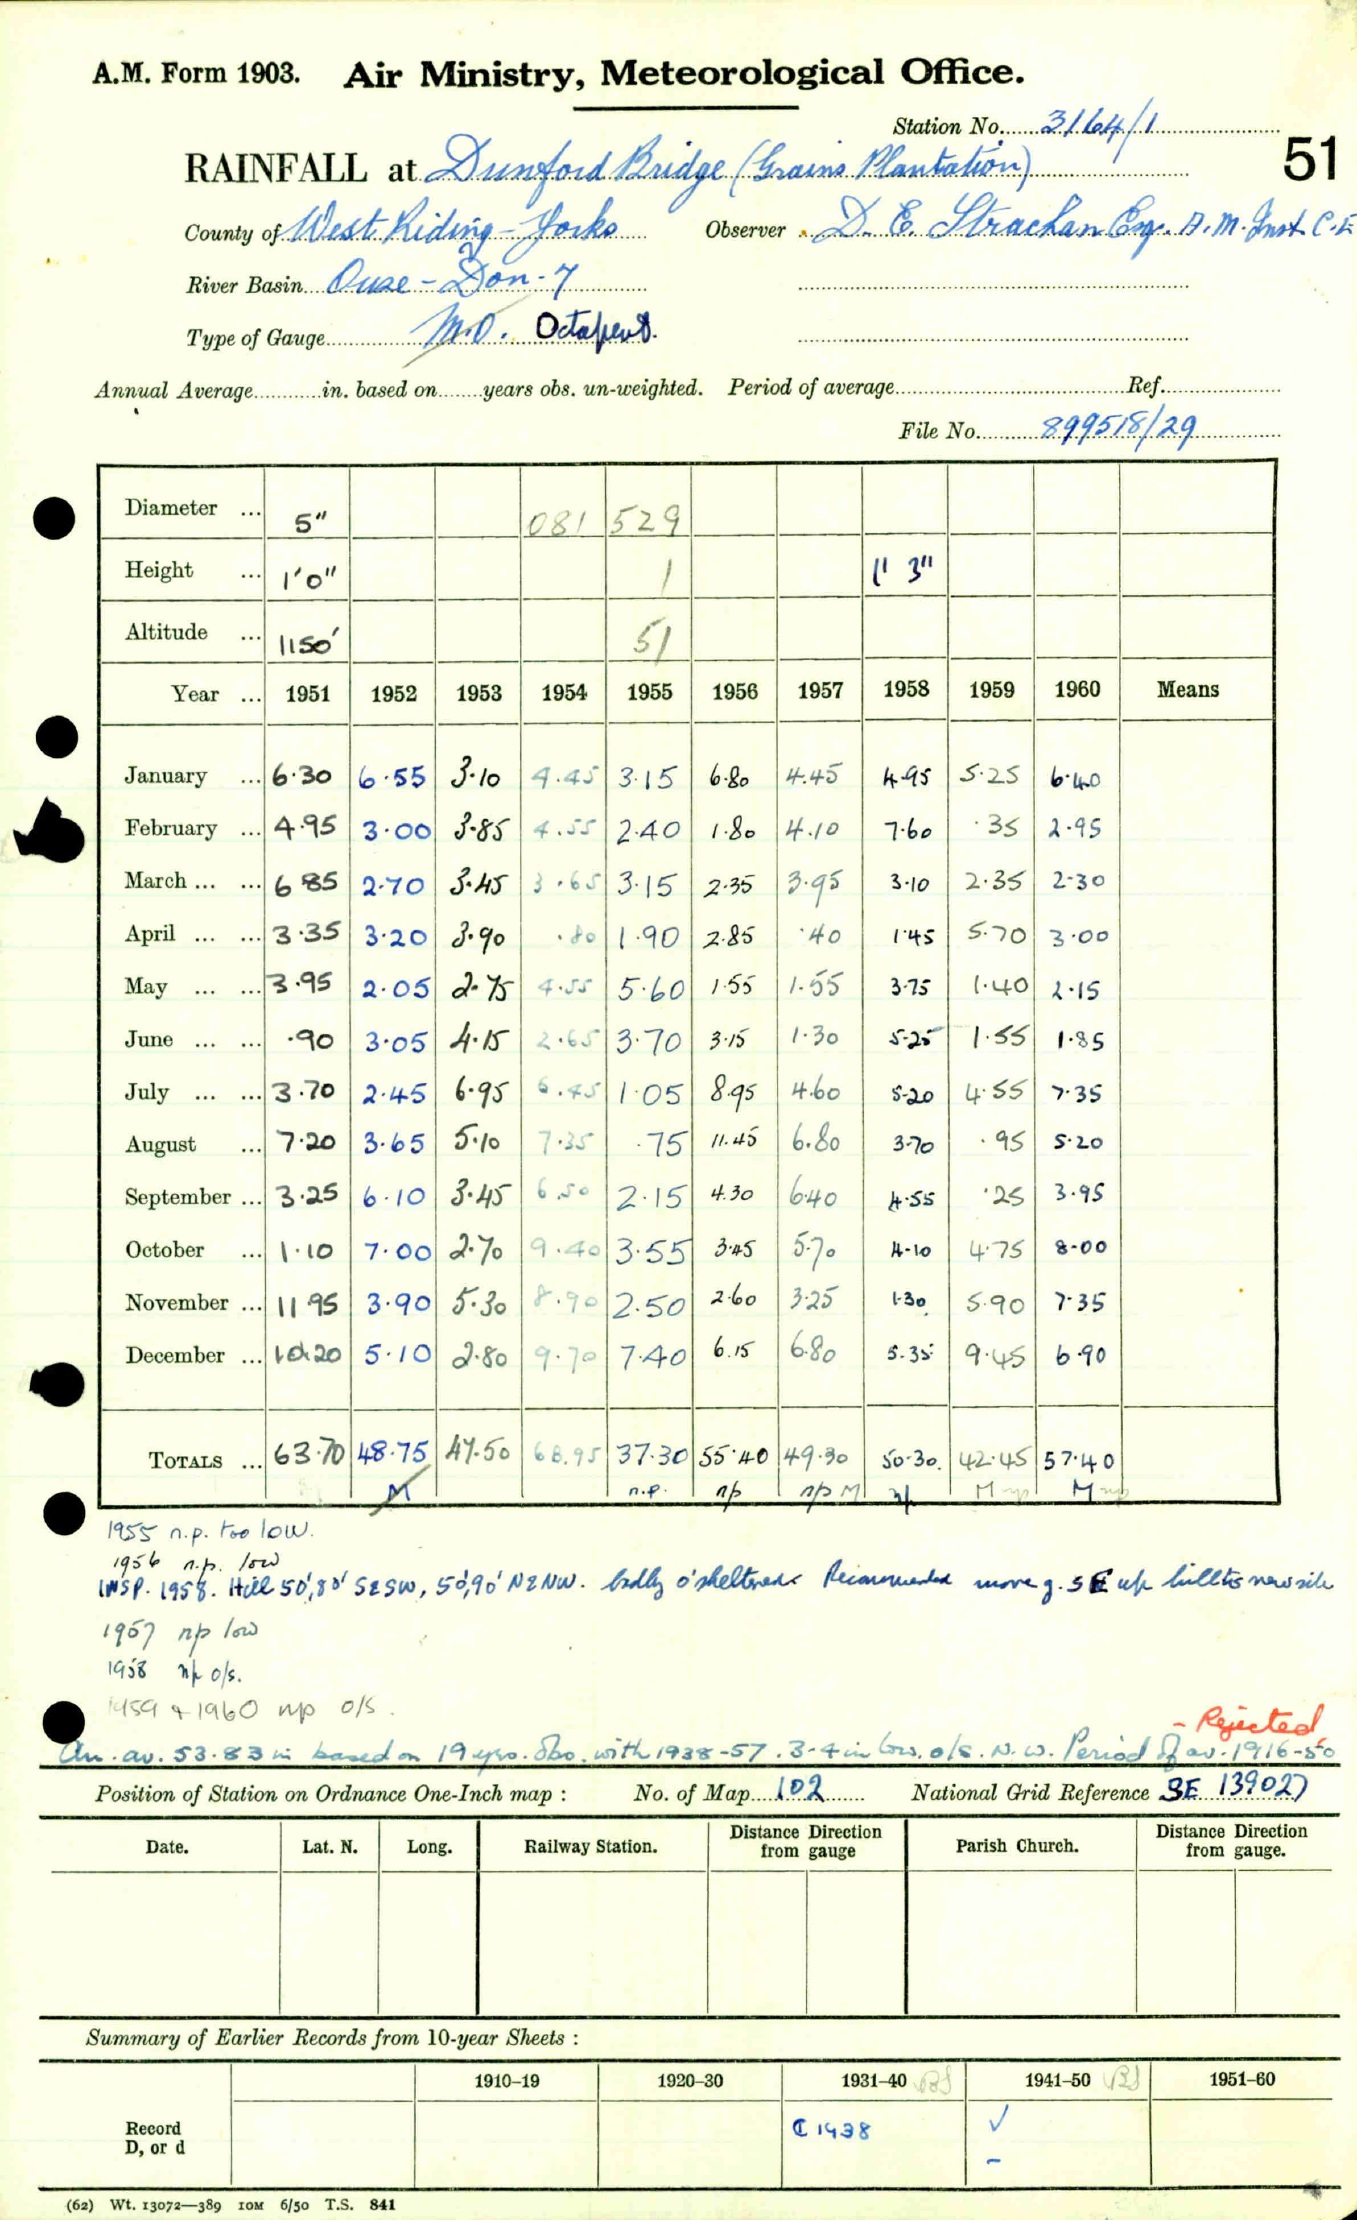 A.M. Form 1903. Air Ministry, Meteorological Office.
Station No. 3164/1
51
RAINFALL at Dunford Bridge (Grains Plantation)
County of West Riding - Yorks Observer D. E. Strachan Esq. A.M. Inst. C.E
River Basin Ouse - Don - 7
Type of Gauge M.O. Octapent.
Annual Average in. based on years obs. un-weighted. Period of average Ref.
File No. 899518/29
Diameter ... 5" 081 529
Height ... 1'0" 1 1' 3"
Altitude ... 1150' 51
Year ... 1951 1952 1953 1954 1955 1956 1957 1958 1959 1960 Means
January ... 6·30 6·55 3·10 4·45 3·15 6·80 4·45 4·95 5·25 6·40
February ... 4·95 3·00 3·85 4·55 2·40 1·80 4·10 7·60 ·35 2·95
March ... ... 6 85 2·70 3·45 3·65 3·15 2·35 3·95 3·10 2·35 2·30
April ... ... 3·35 3·20 3·90 ·80 1·90 2·85 ·40 1·45 5·70 3·00
May ... ... 3·95 2·05 2·75 4·55 5·60 1·55 1·55 3·75 1·40 2·15
June ... ... ·90 3·05 4·15 2·65 3·70 3·15 1·30 5·25 1·55 1·85
July ... ... 3·70 2·45 6·95 6·45 1·05 8·95 4·60 5·20 4·55 7·35
August ... 7·20 3·65 5·10 7·35 ·75 11·45 6·80 3·70 ·95 5·20
September ... 3·25 6·10 3·45 6·50 2·15 4·30 6·40 4·55 ·25 3·95
October ... 1·10 7·00 2·70 9·40 3·55 3·45 5·70 4·10 4·75 8·00
November ... 11 95 3·90 5·30 8·90 2·50 2·60 3·25 1·30 5·90 7·35
December ... 10·20 5·10 2·80 9·70 7·40 6·15 6·80 5·35 9·45 6·90
TOTALS ... 63·70 48·75 47·50 68.95 37·30 55·40 49·30 50·30 42·45 57·40
M n.p. np np M np M np M np
1955 n.p. too low.
1956 n.p. low
INSP. 1958. Hill 50', 80' S&SW, 50', 90' N&NW. badly o'sheltered. Recommended move g. SE up hill to new site
1957 np low
1958 np o/s.
1959 & 1960 np o/s.
- Rejected
An. av. 53·83 in based on 19 yrs. obs. with 1938-57. 3-4 in low. o/s. N.W. Period of av. 1916-50
Position of Station on Ordnance One-Inch map : No. of Map 102 National Grid Reference SE 139027
Date. Lat. N. Long. Railway Station. Distance Direction from gauge Parish Church. Distance Direction from gauge.
Summary of Earlier Records from 10-year Sheets :
1910–19 1920–30 1931–40 1941–50 1951–60
Record D, or d C 1938 ✓
-
(62) Wt. 13072—389 10M 6/50 T.S. 841